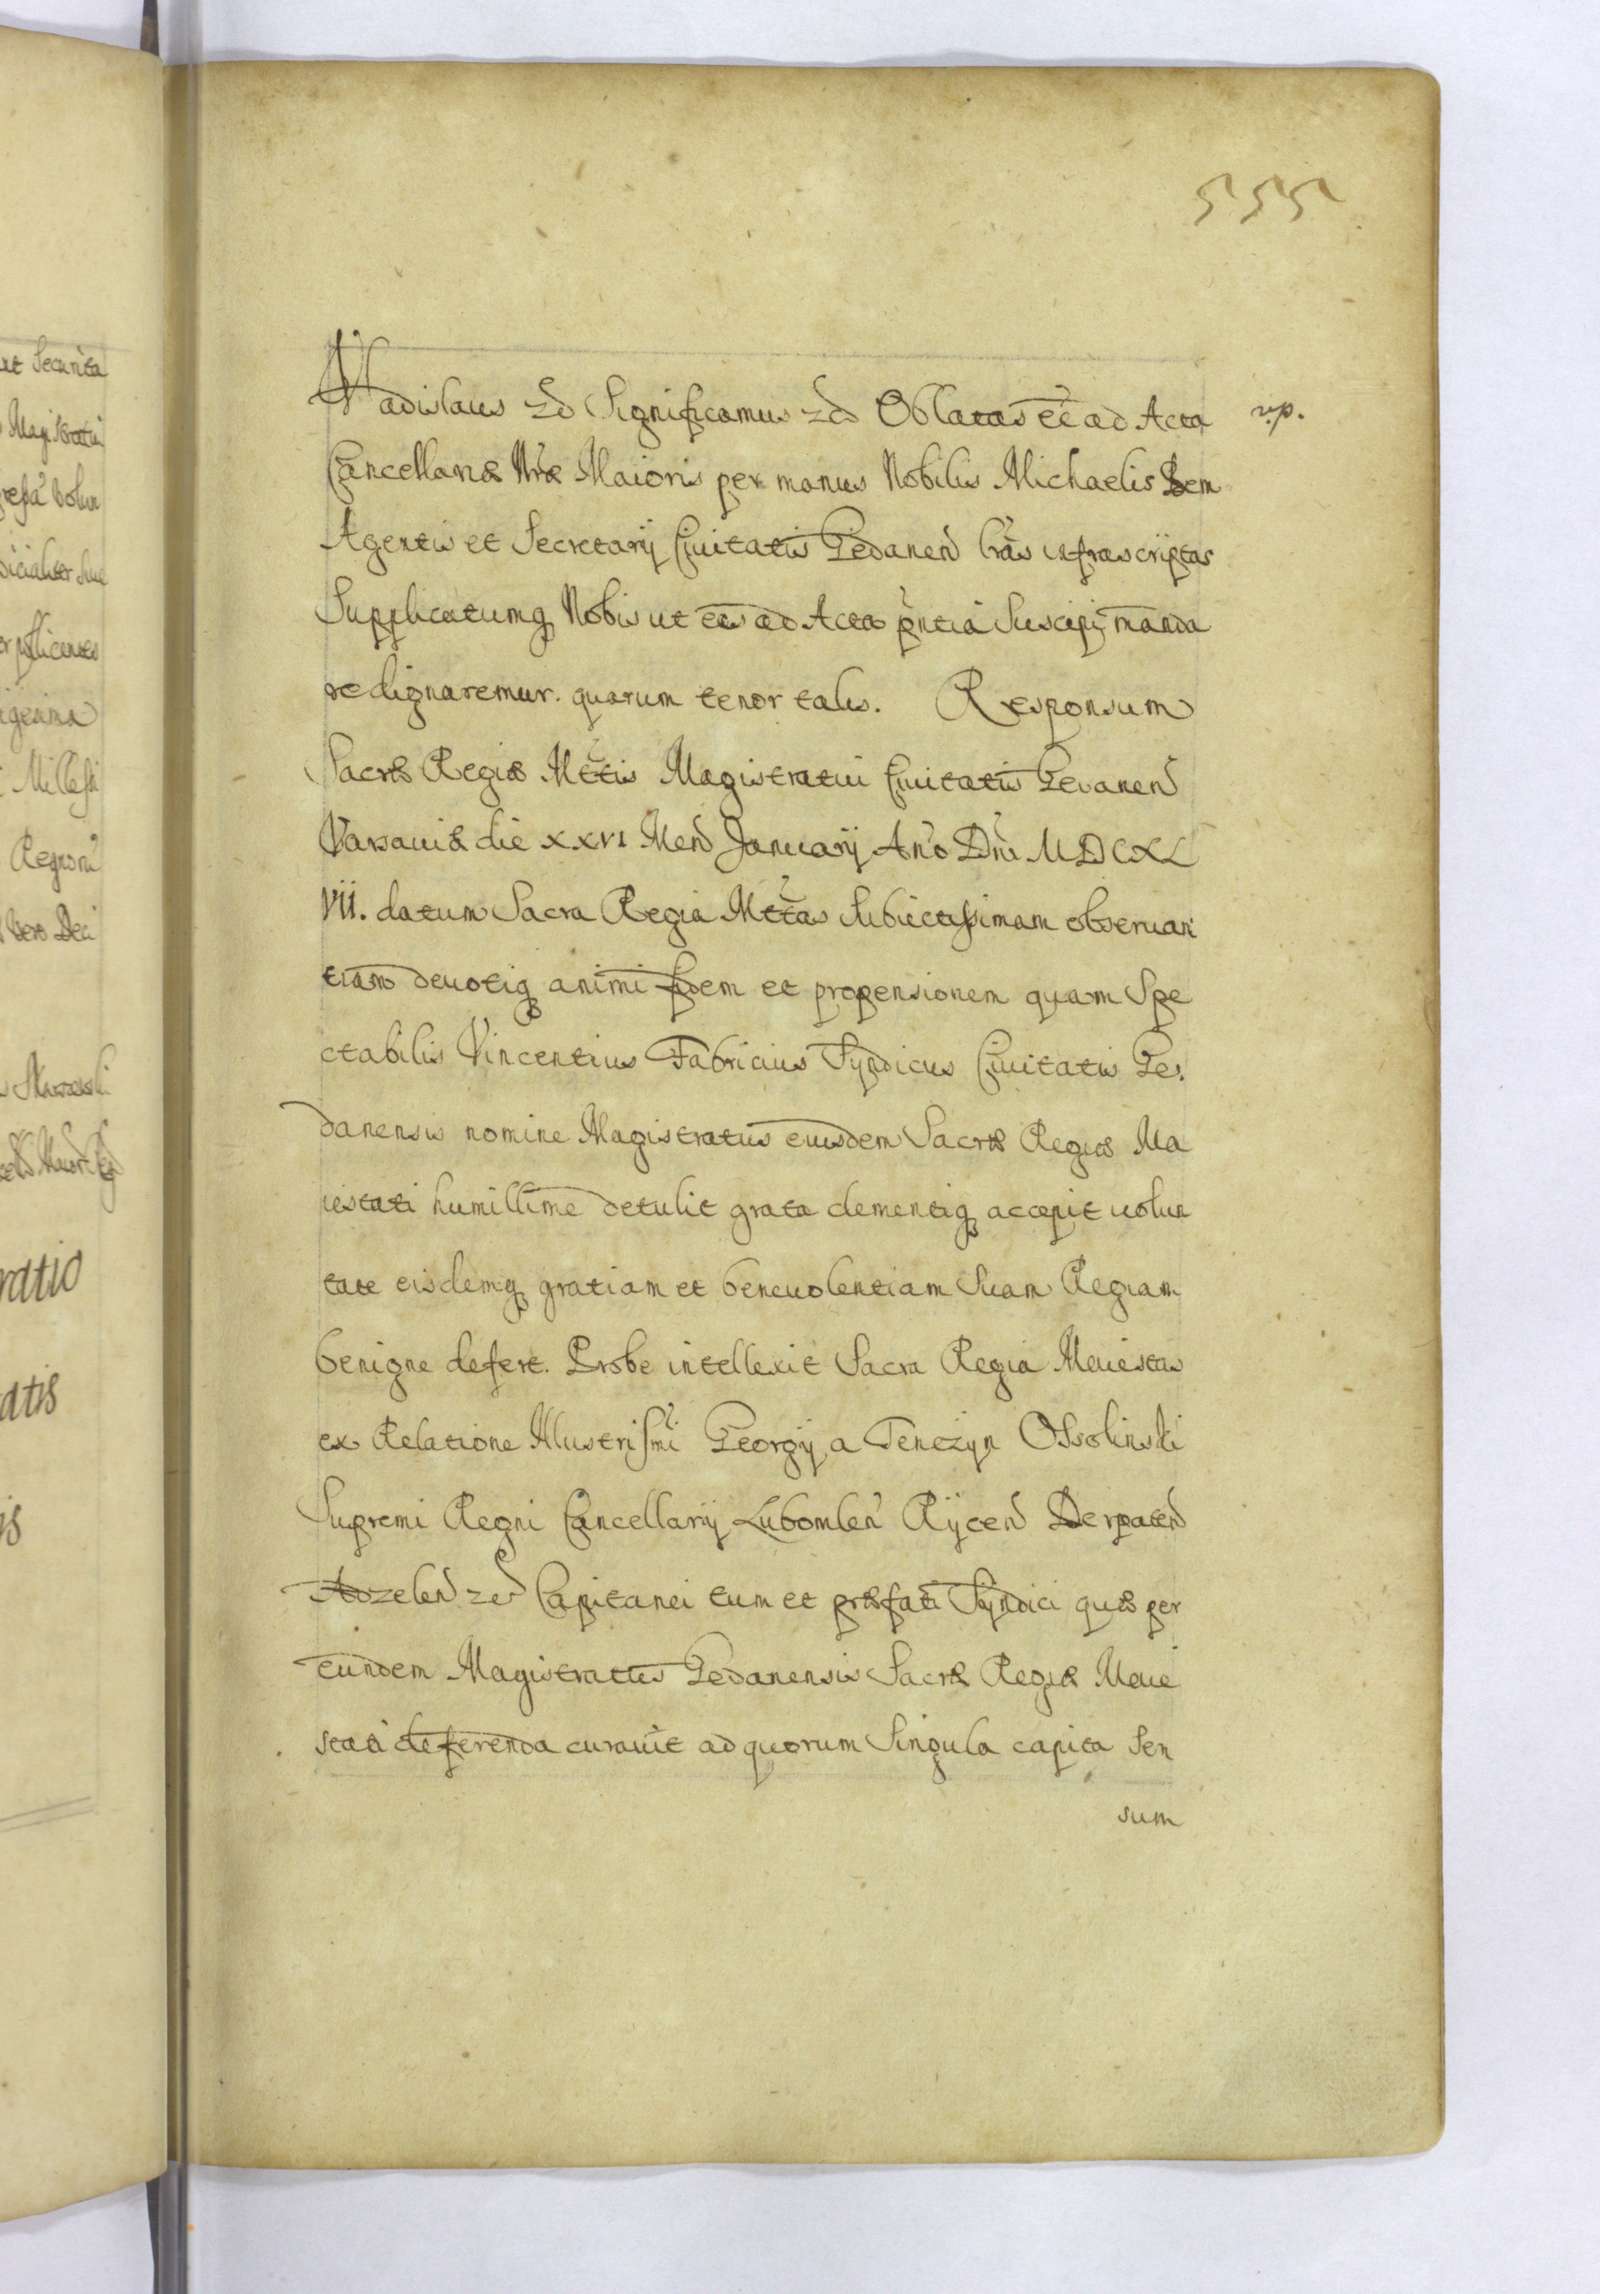 555
Vladislaus etc Significamus etc Oblatas ee ad Acta rp.
Cancellariæ Nræ Maioris per manus Nobilis Michaelis Bem
Agentis et Secretarij Ciuitatis Gedanen lras infrascriptas
Supplicatumq Nobis ut eas ad Acta pntia Suscipi manda
re dignaremur. quarum tenor talis. Responsum
Sacræ Regiæ Mttis Magistratui Ciuitatis Gedanen
Varsauiæ die XXVI Men Januarij Ano Dni MDCXL
VII. datum Sacra Regia Mttas Subiectissimam obseruan
tiam deuotiq animi fidem et propensionem quam Spe
ctabilis Vincentius Fabricius Syndicus Ciuitatis Ge
danensis nomine Magistratus eiusdem Sacræ Regiæ Ma
iestati humillime detulit grata clementiq accepit uolun
tate eisdemq gratiam et beneuolentiam Suam Regiam
benigne defert. Probe intellexit Sacra Regia Maiestas
ex Relatione Illustrissmi Georgij a Tenczyn Ossolinski
Supremi Regni Cancellarij Lubomlen Rÿcen Derpaten
Adzelen etc Capitanei tum et præfati Syndici quæ per
eundem Magistratus Gedanensis Sacræ Regiæ Maie
stati deferenda curauit ad quorum Singula capita Sen
sum